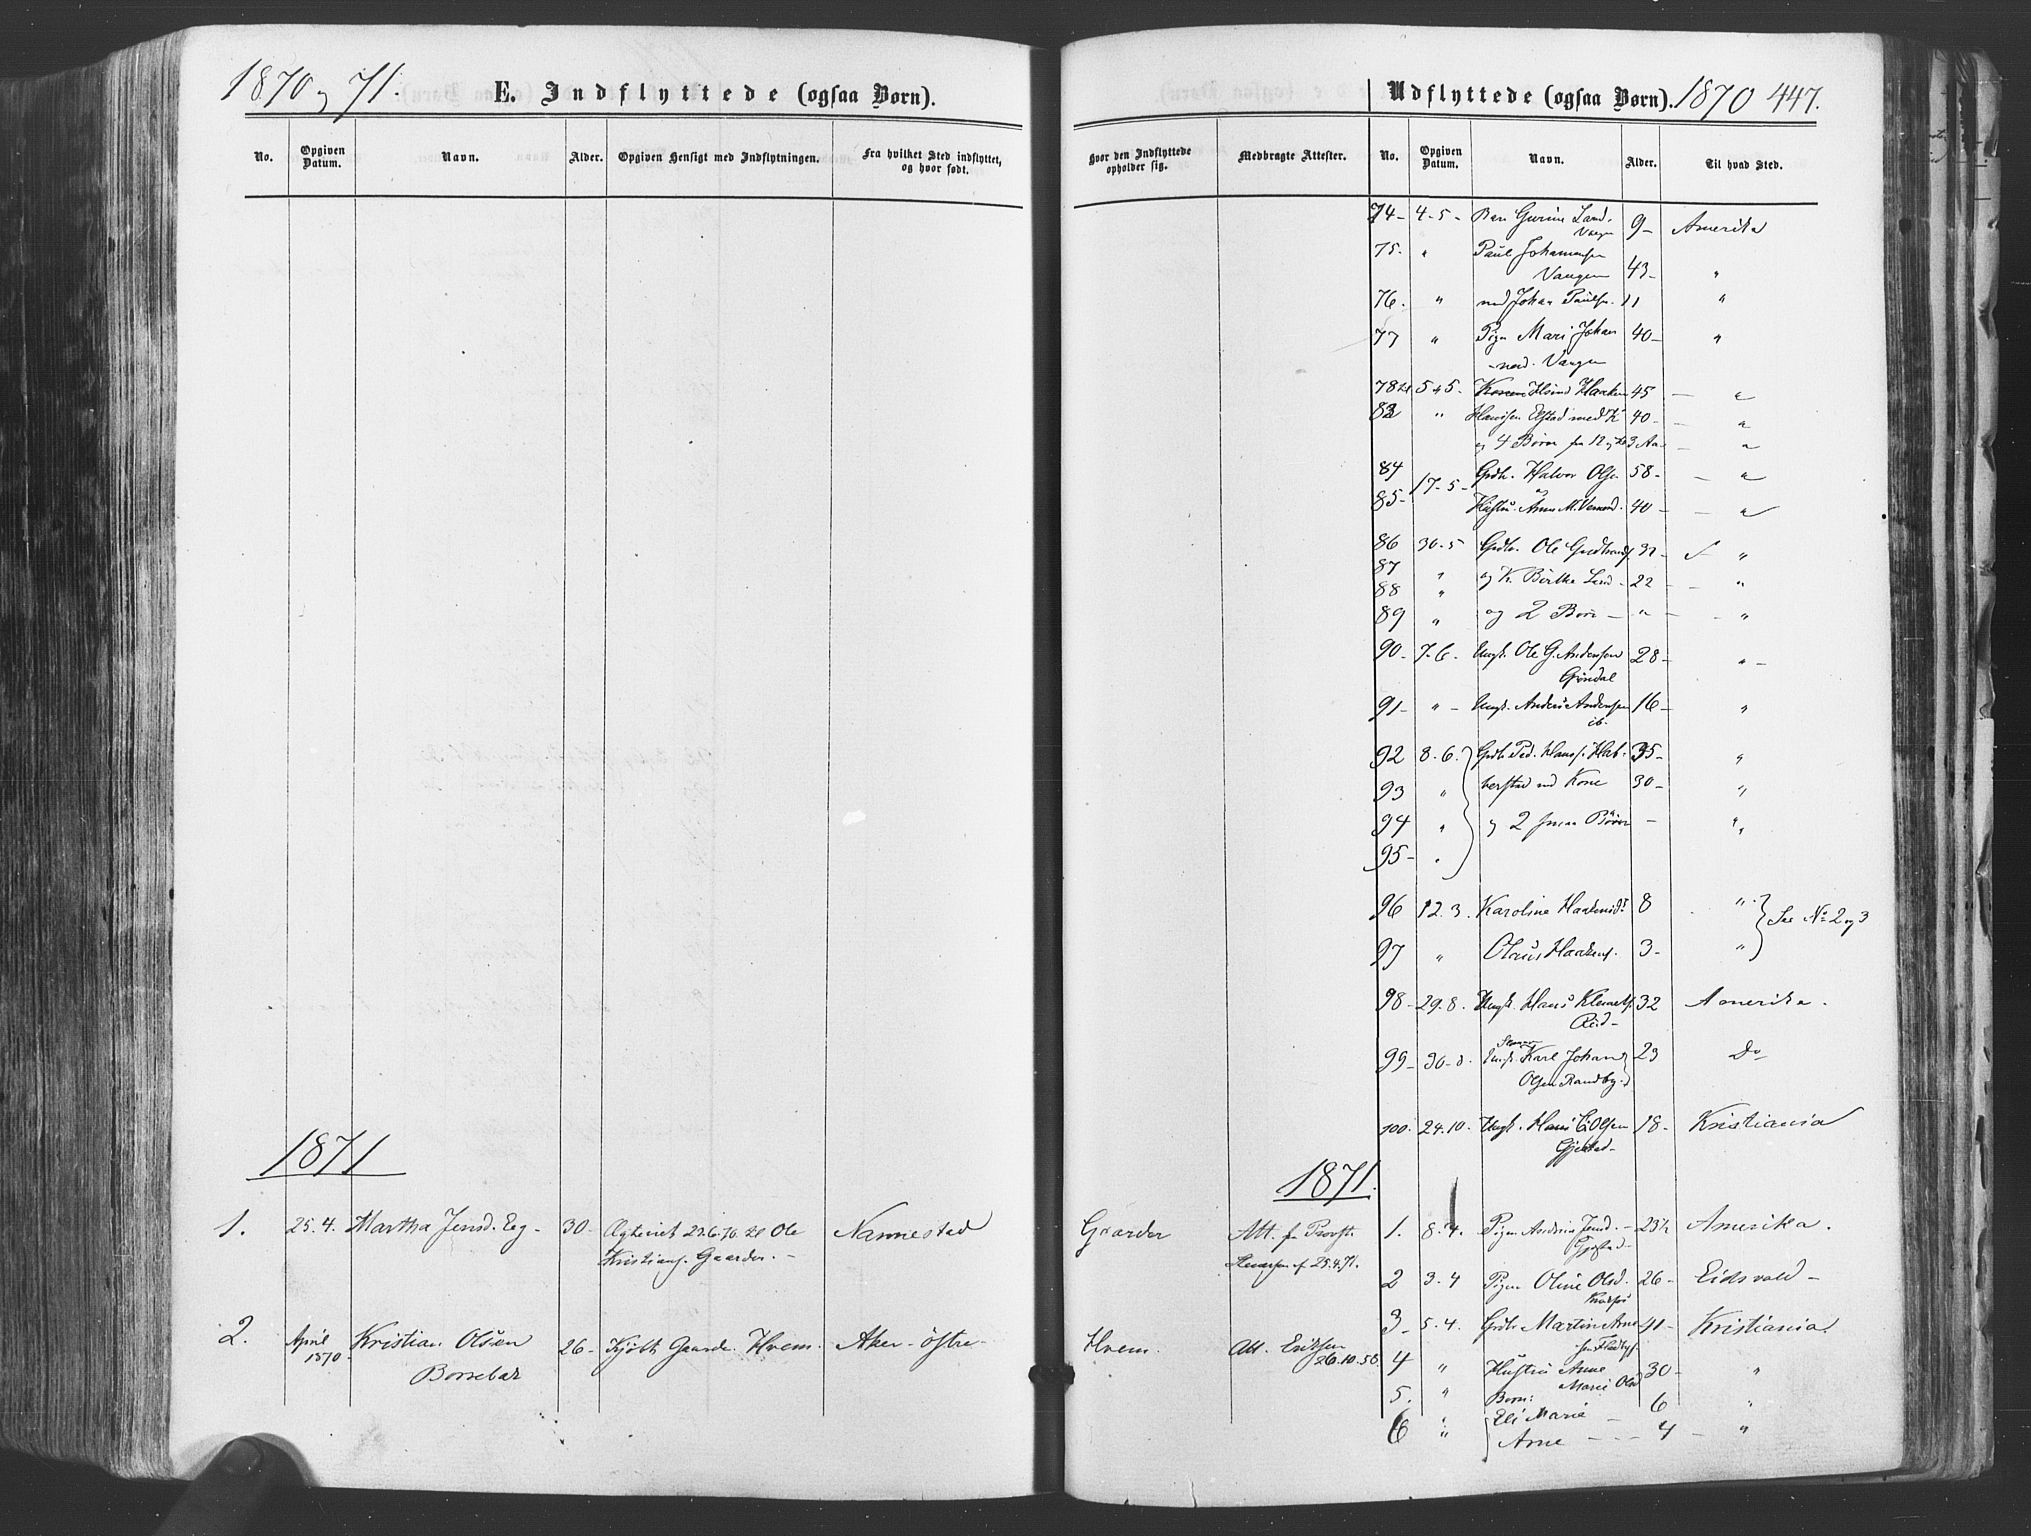 1870 og 71.
E. Indflyttede (ogsaa Børn).
No.
Opgiven Datum.
Navn.
Alder.
Opgiven Hensigt med Indflytningen.
Fra hvilket Sted indflyttet, og hvor født.
1871
1. 25.4. Martha Jensd. Eeg - 30 - Ægteviet 29.6.70 til Ole Nannestad
Kristians. Gaarder. -
2. April 1870. Kristian Olsen 26 - Kjøbt Gaarden Hvem. Aker - østre
Borrebæk
Hvor den Indflyttede opholder sig.
Medbragte Attester.
Gaarder Att. fra Provst
25.4.71.
Hvem. Att. Eriksen
26.10.58
1871.
Udflyttede (ogsaa Børn). 1870 447.
No.
Opgiven Datum.
Navn.
Alder.
Til hvad Sted.
74 - 4-5 - Barn Gurine Land. 9 - Amerika
Vangen
75. " Paul Johannesen
Vangen 43 - "
76. " med Johan Paulsen. 11 "
77 " Pige Mari Johan 40 - "
nesd. Vangen
78 til 5-5. Haaken 45 - "
83 " Hansen med K. 40 - "
og 4 Børn fra 12 og til 3 Aar - "
84 Grdb. Halvor Olsen 58 - "
17-5 - og
85 - Hustru Anne M. 40 - "
86 30-5 Grdb. Ole Gudbrands. 32 - "
87 " og K. Birthe Land - 22 - "
88 "
89 " og 2 Børn - " - "
90 - 7-6. Ungk. Ole G. Andersen 28 - " -
Grindal
91 - " - Ungk. Anders Andersen 16 - "
ib.
92 8-6. Grdb. Ped. Hans. Hab- 35 - "
93 " berstad med Kone 30 - "
94 " og 2 smaa Børn - "
95 - "
96 12.3. Karoline Haakensd. 8 " See No 2 og 3
97 " Olaus Haakens. 3 - "
98 - 29.8. Ungk. Hans Klemets. 32 Amerika.
99 - 30-8. Ungk. Karl Johan 23 Do
Olsen Randby.
100. 24.10. Ungk. Hans E. Olsen 18 - Kristiania
Gjestad -
1. 8.4. Pigen Andrine Jensd. - 23½ Amerika.
Gjestad -
2 3.4 Pigen Oline Olsd. 26 - Eidsvold -
3 - 5.4. Grdb. Martin Arne 41 - Kristiania.
sen Fladbys.
4 " Hustru Anne 30 - "
Marie Olsd
5. " Børn: 6 "
6 " Eli Marie -
" Arne - - - 4 - "